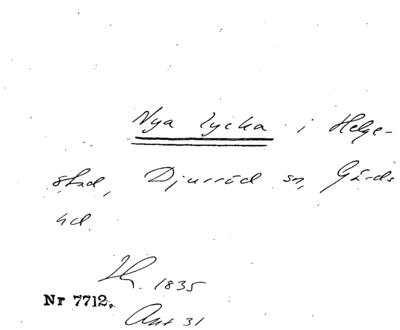 Nya lycka i Helge-
stad, Djurröd sn, Gärds
hd.
1835
Nr 7712.
Akt 31